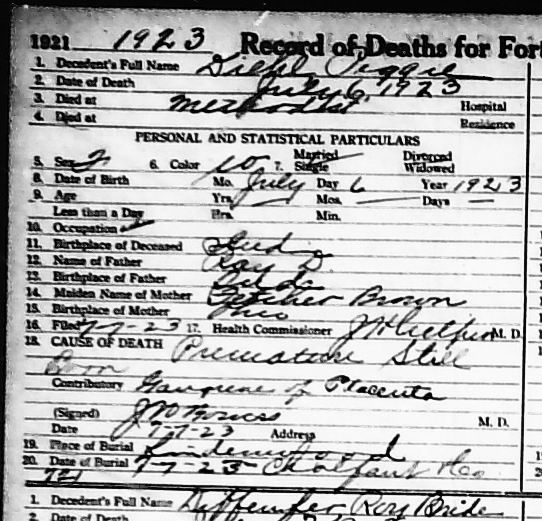 1921 1923 Record of Deaths for Fort
1. Decedent's Full Name Diehl, Peggie
2. Date of Death July 6, 1923
3. Died at Methodist Hospital
4. Died at Residence
PERSONAL AND STATISTICAL PARTICULARS
5. Sex F 6. Color W 7. Married Single Divorced Widowed
8. Date of Birth Mo. July Day 6 Year 1923
9. Age Yrs. — Mos. — Days —
Less than a Day Hrs. Min.
10. Occupation
11. Birthplace of Deceased Ind
12. Name of Father Ray D.
13. Birthplace of Father Ind
14. Maiden Name of Mother Brown
15. Birthplace of Mother Ohio
16. Filed 7-7-23 17. Health Commissioner M. D.
18. CAUSE OF DEATH Premature Still
Born
Contributory Gangrene of Placenta
(Signed) M. D.
Date 7-7-23 Address
19. Place of Burial Lindenwood
20. Date of Burial 7-7-23 Chalfant
1. Decedent's Full Name Roy Bride
2. Date of Death